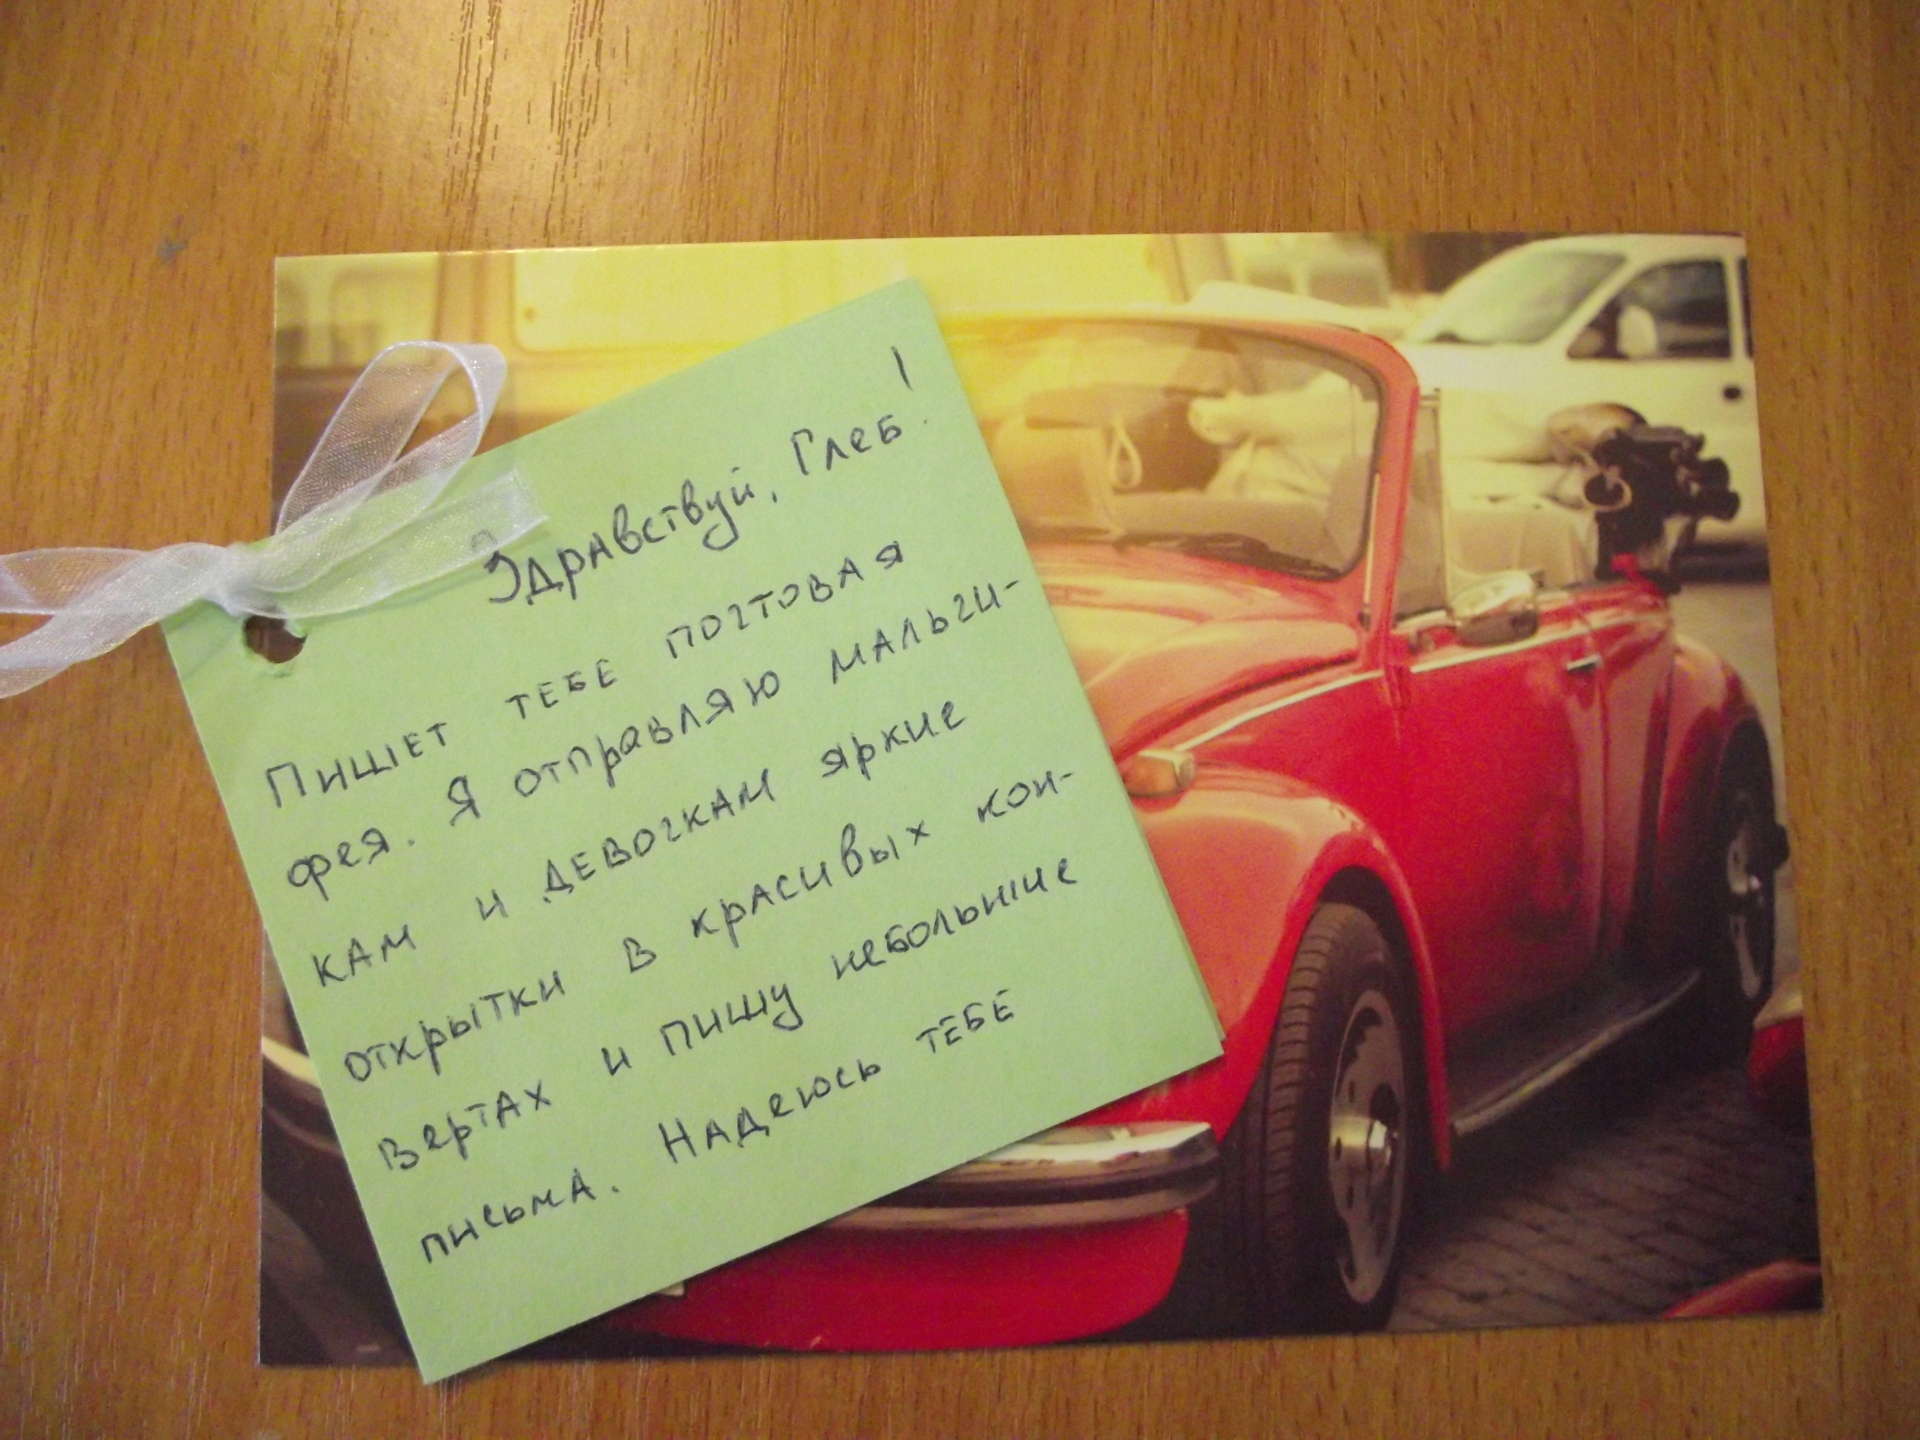 Здравствуй, Глеб!
Пишет тебе почтовая
фея. Я отправляю мальчи-
кам и девочкам яркие
открытки в красивых кон-
вертах и пишу небольшие
письма. Надеюсь тебе